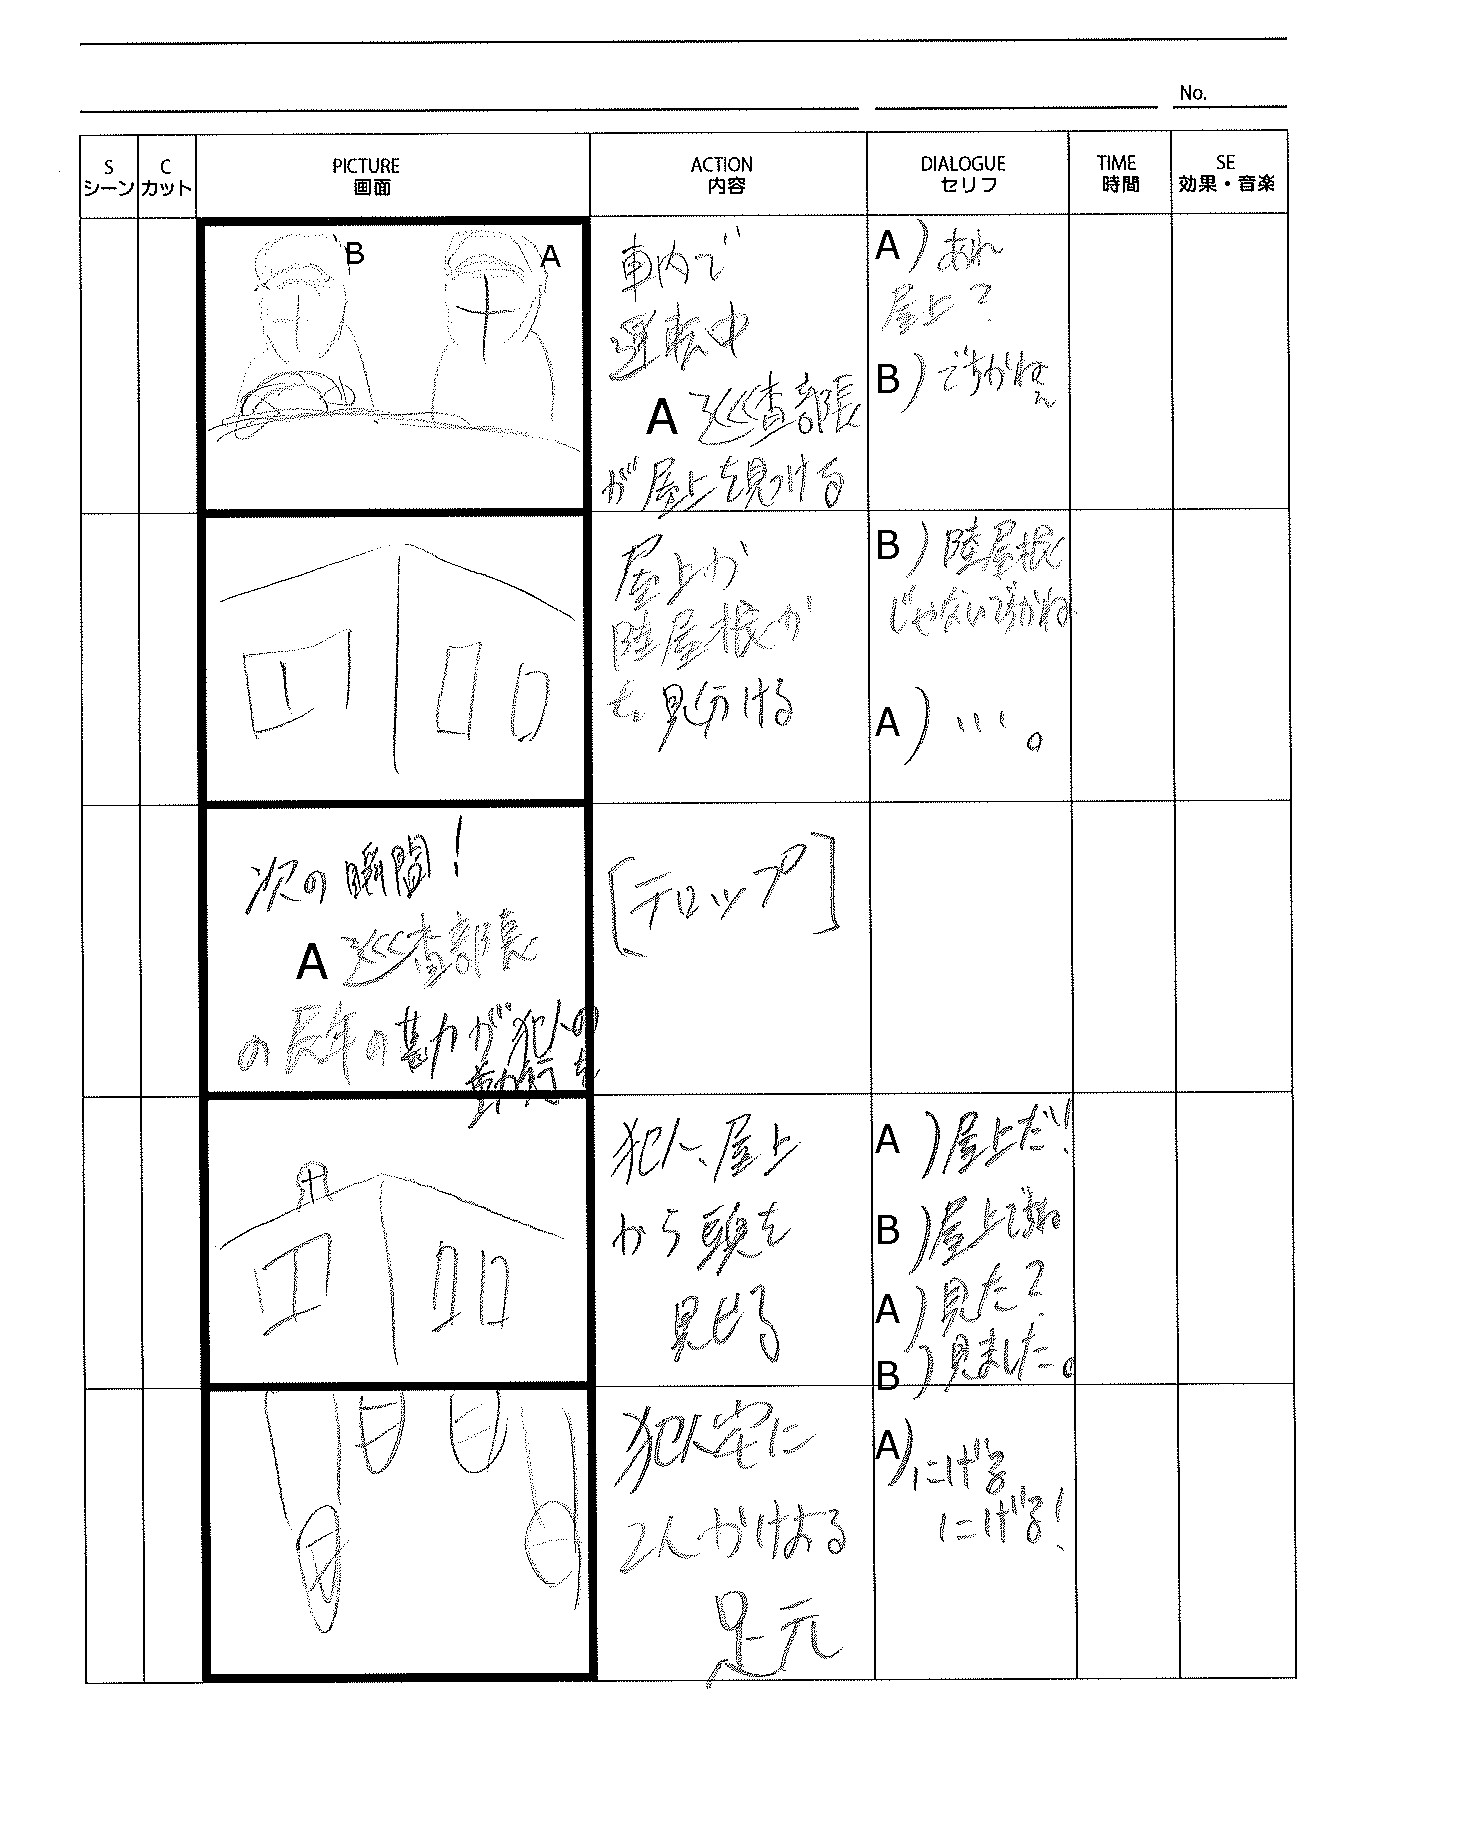 No.
S
シーン
C
カット
PICTURE
画面
ACTION
内容
DIALOGUE
セリフ
TIME
時間
SE
効果・音楽
B
A
車内で
運転中
A 巡査部長
が屋上を見つける
A）あれ
屋上？
B）ですかねえ
屋上か
陸屋根か
を見分ける
B）陸屋根
じゃないですかね
A）…。
次の瞬間！
A 巡査部長
の長年の勘が犯人の
[テロップ]
犯人、屋上
から頭を
見せる
A）屋上だ！
B）屋上ですね
A）見た？
B）見ました。
犯人宅に
2人がけよる
足元
A）にげる
にげる！